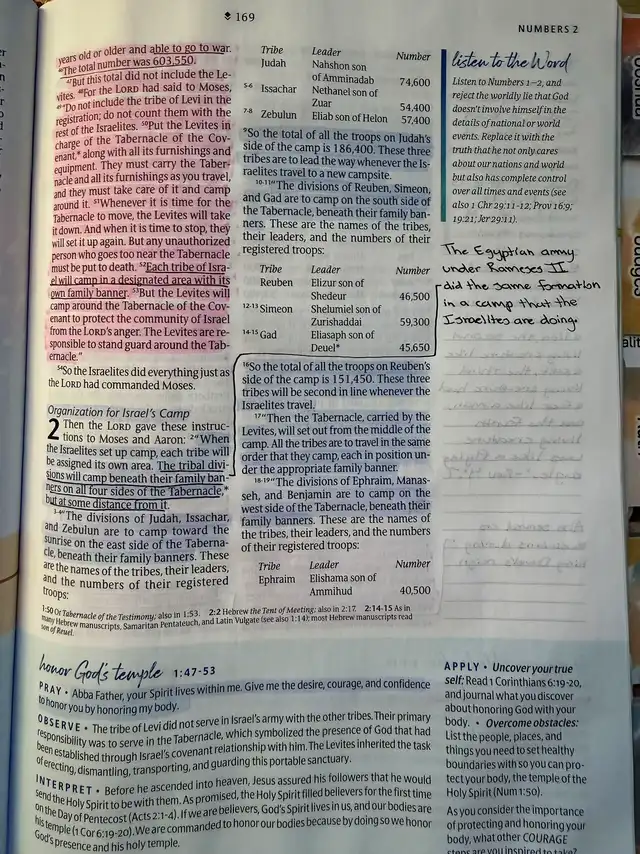 169
NUMBERS 2
years old or older and able to go to war.
⁴⁶The total number was 603,550.
⁴⁷But this total did not include the Le-
vites. ⁴⁸For the LORD had said to Moses,
⁴⁹"Do not include the tribe of Levi in the
registration; do not count them with the
rest of the Israelites. ⁵⁰Put the Levites in
charge of the Tabernacle of the Cov-
enant,* along with all its furnishings and
equipment. They must carry the Taber-
nacle and all its furnishings as you travel,
and they must take care of it and camp
around it. ⁵¹Whenever it is time for the
Tabernacle to move, the Levites will take
it down. And when it is time to stop, they
will set it up again. But any unauthorized
person who goes too near the Tabernacle
must be put to death. ⁵²Each tribe of Isra-
el will camp in a designated area with its
own family banner. ⁵³But the Levites will
camp around the Tabernacle of the Cov-
enant to protect the community of Israel
from the LORD's anger. The Levites are re-
sponsible to stand guard around the Tab-
ernacle."
⁵⁴So the Israelites did everything just as
the LORD had commanded Moses.
Organization for Israel's Camp
2 Then the LORD gave these instruc-
tions to Moses and Aaron: ²"When
the Israelites set up camp, each tribe will
be assigned its own area. The tribal divi-
sions will camp beneath their family ban-
ners on all four sides of the Tabernacle,*
but at some distance from it.
³⁻⁴"The divisions of Judah, Issachar,
and Zebulun are to camp toward the
sunrise on the east side of the Taberna-
cle, beneath their family banners. These
are the names of the tribes, their leaders,
and the numbers of their registered
troops:
Tribe Leader Number
Judah Nahshon son
of Amminadab 74,600
5-6 Issachar Nethanel son of
Zuar 54,400
7-8 Zebulun Eliab son of Helon 57,400
⁹So the total of all the troops on Judah's
side of the camp is 186,400. These three
tribes are to lead the way whenever the Is-
raelites travel to a new campsite.
¹⁰⁻¹¹"The divisions of Reuben, Simeon,
and Gad are to camp on the south side of
the Tabernacle, beneath their family ban-
ners. These are the names of the tribes,
their leaders, and the numbers of their
registered troops:
Tribe Leader Number
Reuben Elizur son of
Shedeur 46,500
12-13 Simeon Shelumiel son of
Zurishaddai 59,300
14-15 Gad Eliasaph son of
Deuel* 45,650
¹⁶So the total of all the troops on Reuben's
side of the camp is 151,450. These three
tribes will be second in line whenever the
Israelites travel.
¹⁷"Then the Tabernacle, carried by the
Levites, will set out from the middle of the
camp. All the tribes are to travel in the same
order that they camp, each in position un-
der the appropriate family banner.
¹⁸⁻¹⁹"The divisions of Ephraim, Manas-
seh, and Benjamin are to camp on the
west side of the Tabernacle, beneath their
family banners. These are the names of
the tribes, their leaders, and the numbers
of their registered troops:
Tribe Leader Number
Ephraim Elishama son of
Ammihud 40,500
listen to the Word
Listen to Numbers 1–2, and
reject the worldly lie that God
doesn't involve himself in the
details of national or world
events. Replace it with the
truth that he not only cares
about our nations and world
but also has complete control
over all times and events (see
also 1 Chr 29:11-12; Prov 16:9;
19:21; Jer 29:11).
The Egyptian army
under Rameses II
did the same formation
in a camp that the
Israelites are doing.
1:50 Or Tabernacle of the Testimony; also in 1:53. 2:2 Hebrew the Tent of Meeting; also in 2:17. 2:14-15 As in
many Hebrew manuscripts, Samaritan Pentateuch, and Latin Vulgate (see also 1:14); most Hebrew manuscripts read
son of Reuel.
honor God's temple 1:47-53
PRAY • Abba Father, your Spirit lives within me. Give me the desire, courage, and confidence
to honor you by honoring my body.
OBSERVE • The tribe of Levi did not serve in Israel's army with the other tribes. Their primary
responsibility was to serve in the Tabernacle, which symbolized the presence of God that had
been established through Israel's covenant relationship with him. The Levites inherited the task
of erecting, dismantling, transporting, and guarding this portable sanctuary.
INTERPRET • Before he ascended into heaven, Jesus assured his followers that he would
send the Holy Spirit to be with them. As promised, the Holy Spirit filled believers for the first time
on the Day of Pentecost (Acts 2:1-4). If we are believers, God's Spirit lives in us, and our bodies are
his temple (1 Cor 6:19-20). We are commanded to honor our bodies because by doing so we honor
God's presence and his holy temple.
APPLY • Uncover your true
self: Read 1 Corinthians 6:19-20,
and journal what you discover
about honoring God with your
body. • Overcome obstacles:
List the people, places, and
things you need to set healthy
boundaries with so you can pro-
tect your body, the temple of the
Holy Spirit (Num 1:50).
As you consider the importance
of protecting and honoring your
body, what other COURAGE
steps are you inspired to take?